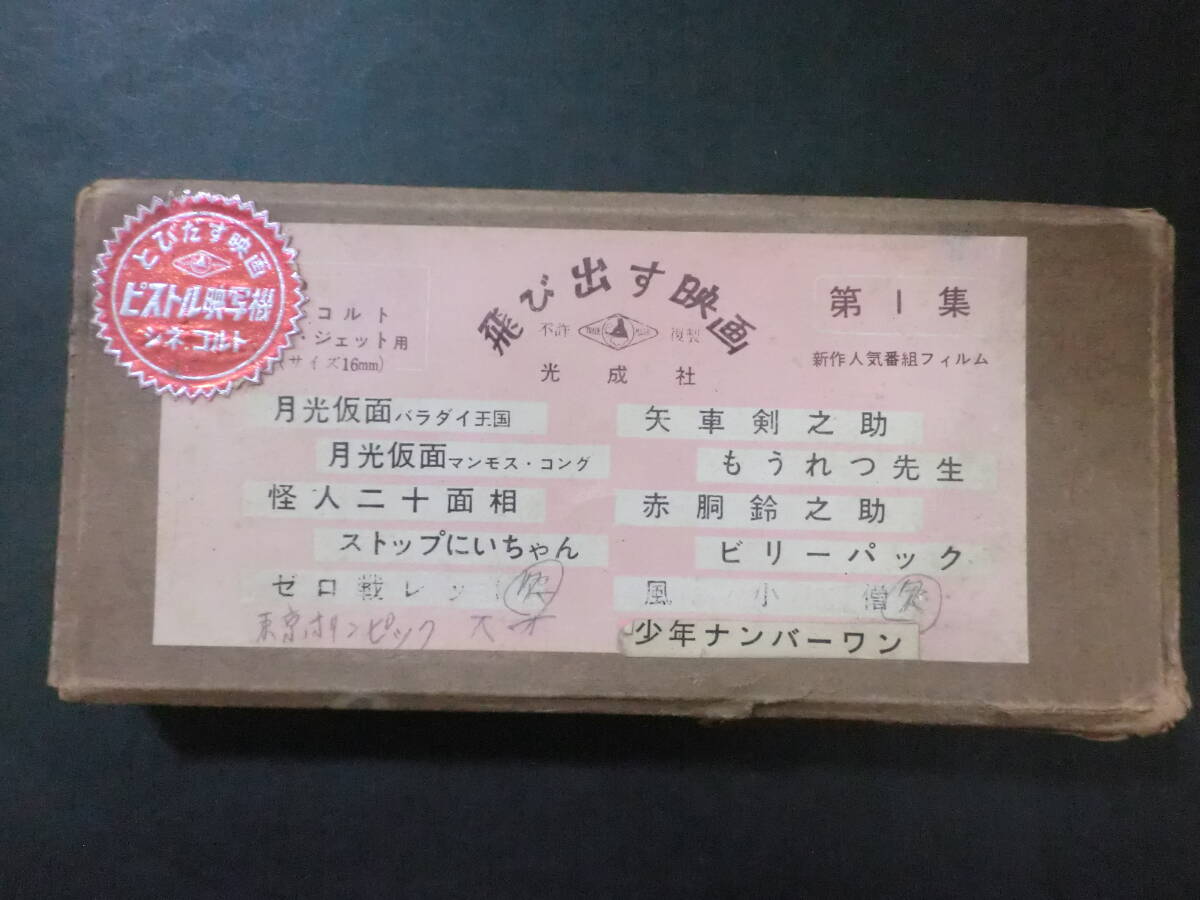 とびだす映画
ピストル映写機
シネコルト
コルト
・ジェット用
(サイズ16mm)
飛び出す映画
不許 複製
光成社
第1集
新作人気番組フィルム
月光仮面バラダイ王国
月光仮面マンモス・コング
怪人二十面相
ストップにいちゃん
ゼロ戦レッ
東京オリンピック
矢車剣之助
もうれつ先生
赤胴鈴之助
ビリーパック
風小僧
少年ナンバーワン